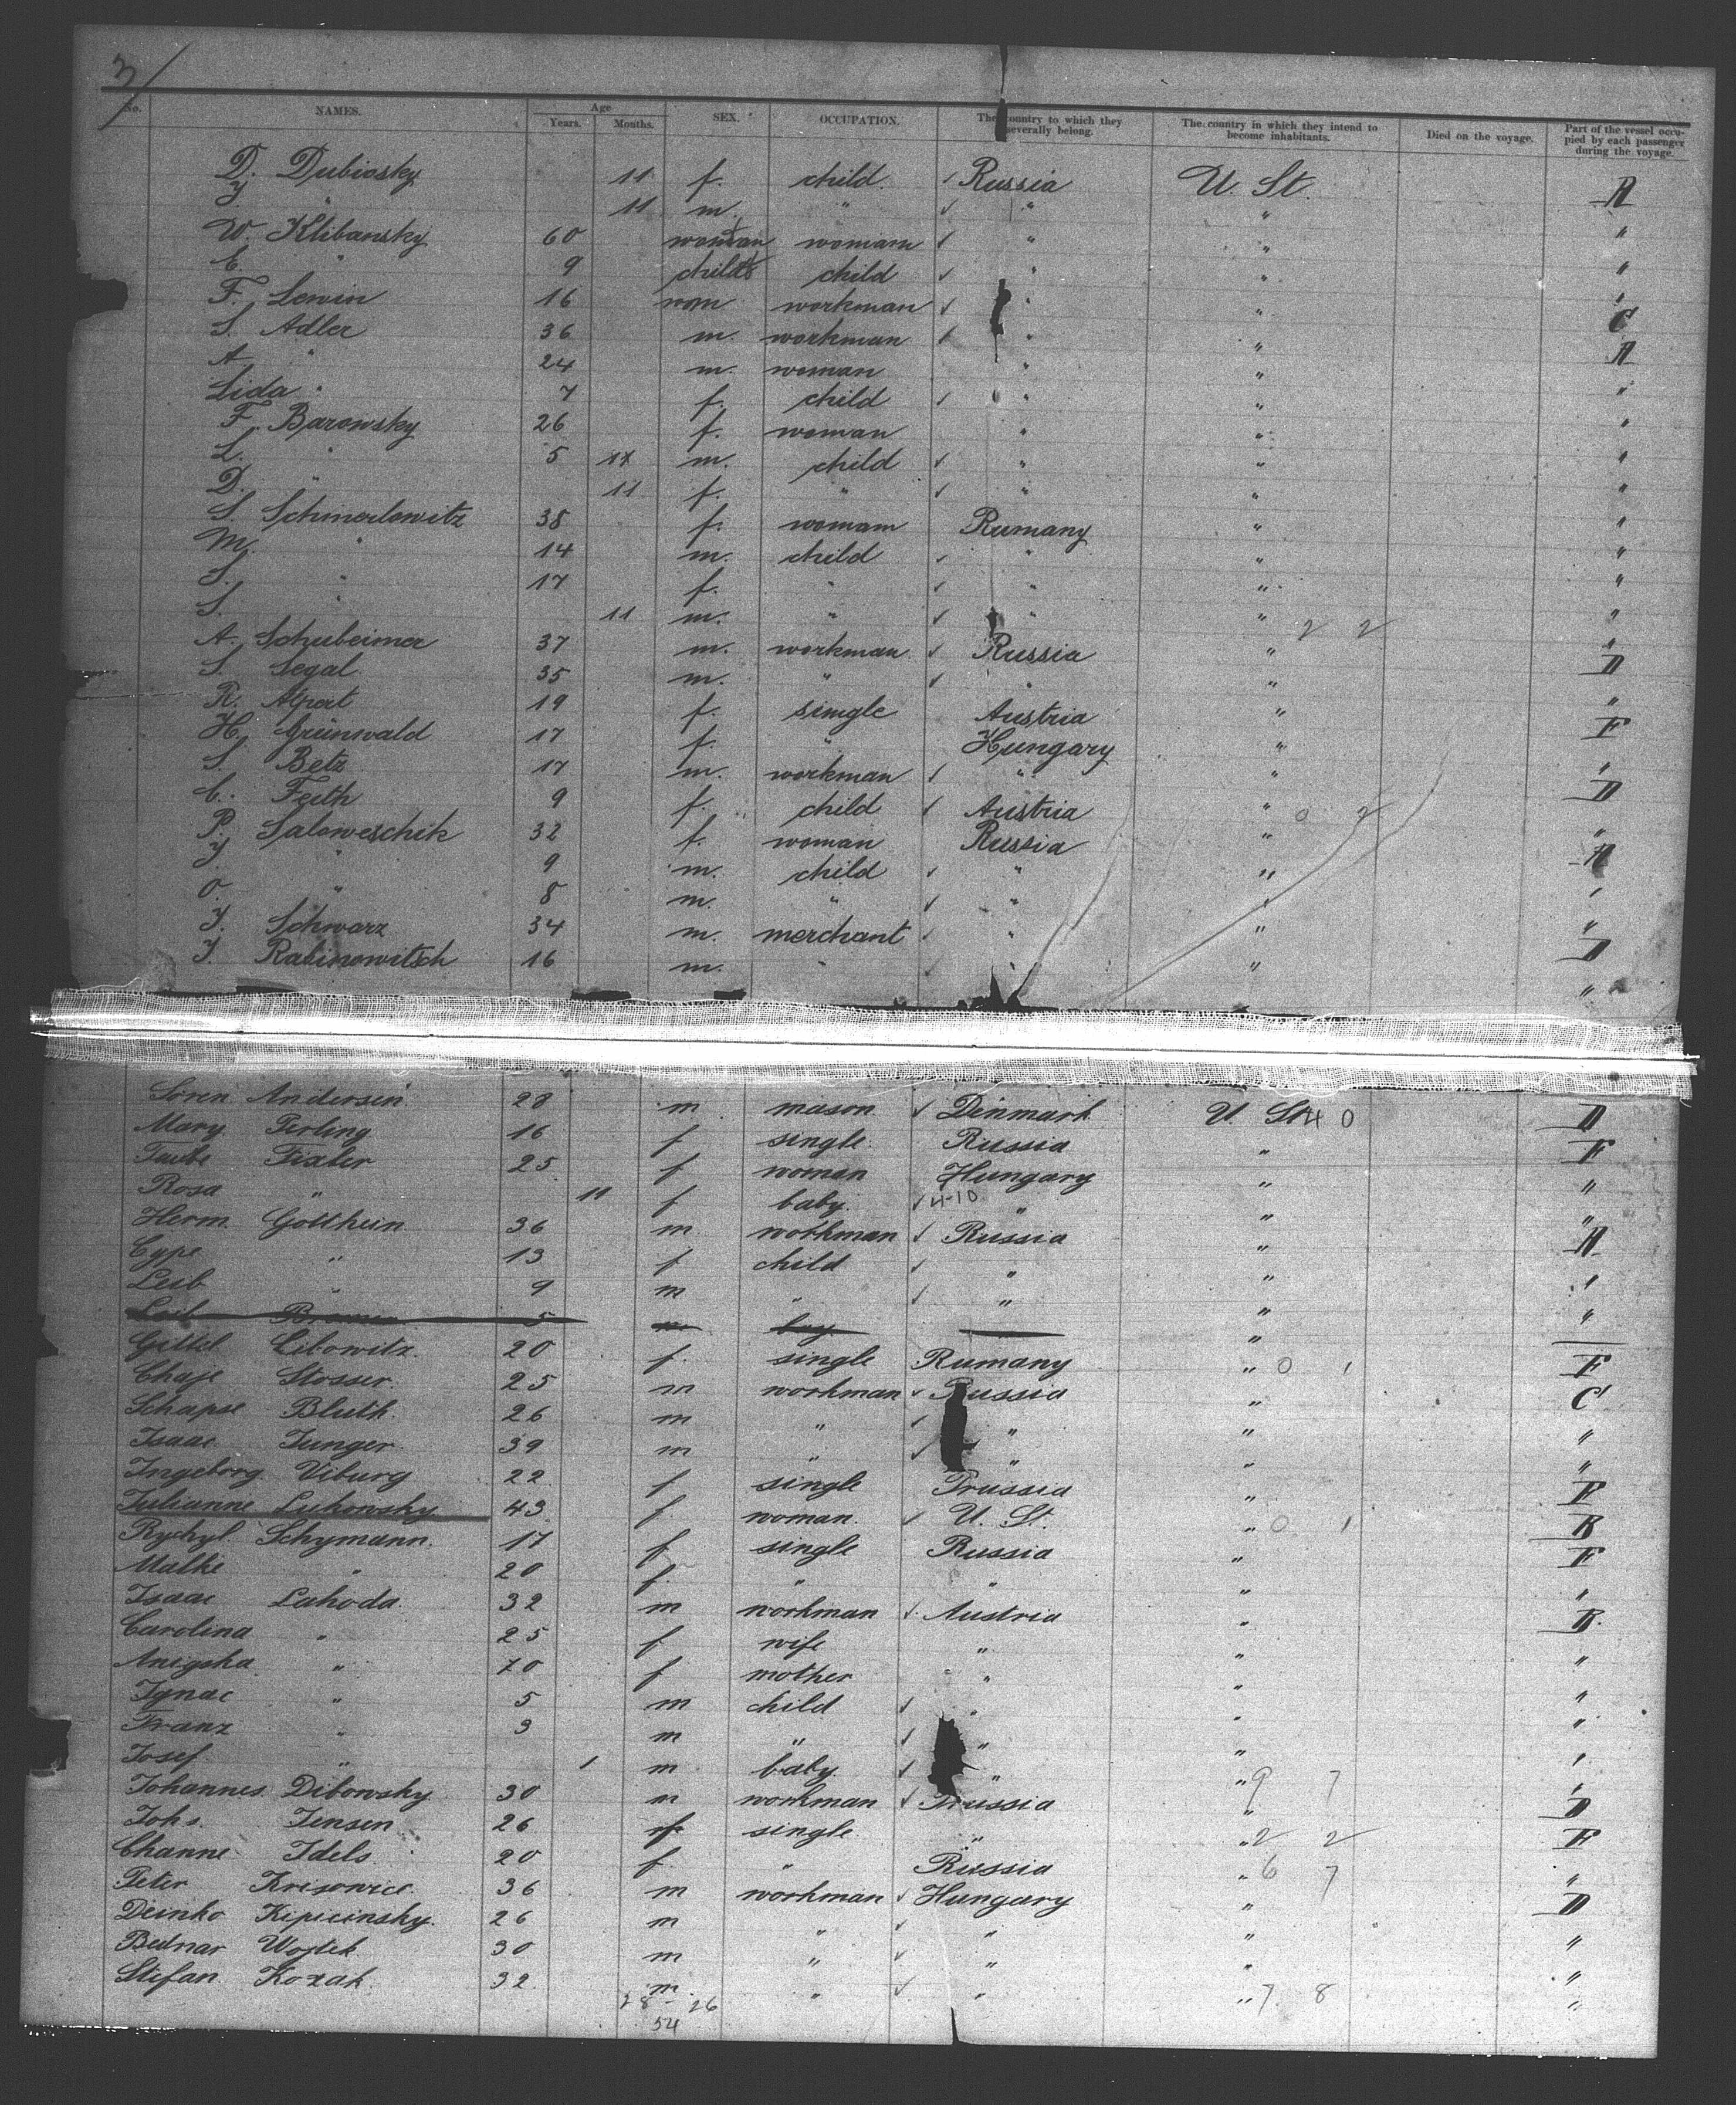 3/
No. NAMES. Age Years. Months. SEX. OCCUPATION. The country to which they severally belong. The country in which they intend to become inhabitants. Died on the voyage. Part of the vessel occupied by each passenger during the voyage.
D. Dubiosky 11 f. child. ✓ Russia U. St. A
Y " 11 m. " ✓ " " "
W. Klibansky 60 woman womam ✓ " " "
E. " 9 child child ✓ " " "
F. Lewin 16 workman ✓ " " C
S. Adler 36 m. workman ✓ " " A
A. " 24 m. woman " " "
Lida " 7 f. child ✓ " " "
F. Barowsky 26 f. woman " " "
L. " 5 11 m. child ✓ " " "
D. " 11 f. " ✓ " " "
S Schmerlowitz 38 f. womam Rumany " "
M. " 14 m. child ✓ " " "
S. " 17 f. " " " "
S. " 11 m. " ✓ " " 2 2 "
A. Schubeimer 37 m. workman ✓ Russia " D
S. Segal 35 m. " ✓ " " "
R. Alpert 19 f. simgle Austria " F
H. Grünwald 17 f. " Hungary " "
S. Betz 17 m. workman ✓ " " D
C. Feith 9 f. child ✓ Austria " 0 "
P. Saloweschik 32 f. woman Russia " A
Y " 9 m. child ✓ " " "
O. " 8 m. " ✓ " " "
J. Schwarz 34 m. merchant ✓ " " D
J. Rabinowitsch 16 m. " " " "
Sören Andersen 28 m mason ✓ Dinmark U. St. 4 0 D
Mary Ferling 16 f single Russia " F
Taube Fixler 25 f woman Hungary " "
Rosa " 11 f baby ✓ 4-10 " " "
Herm. Gotthein 36 m workman ✓ Russia " A
Cype " 13 f child ✓ " " "
Leib " 9 m " ✓ " " "
Leib 5 m boy "
Gittel Libowitz. 20 f. single Rumany " 0 1 F
Chaje Stosser. 25 m workman ✓ Russia " C
Schapse Bluth. 26 m " ✓ " " "
Isaac Junger. 39 m " ✓ " " "
Ingeborg Viburg 22 f single Prussia " F
Julianne Lukowsky 43 f. woman. ✓ U. St. " 0 1 B
Rychyl Schymann. 17 f single Russia " F
Malke " 20 f. " " " "
Isaac Lahoda 32 m workman ✓ Austria " B.
Carolina " 25 f. wife " " "
Anigska " 70 f mother " " "
Ignac " 5 m child ✓ " " "
Franz " 3 m " ✓ " " "
Josef. " 1 m baby ✓ " " 9 7 "
Johannes Dibowsky 30 m workman ✓ Prussia " D
Johs. Jensen 26 single " " 2 2 F
Channe Idels 20 f. " Russia " 6 7 "
Peter Krisowicz. 36 m workman ✓ Hungary " D
Deinko Kipicinsky. 26 m " ✓ " " "
Bednar Wojtek 30 m " ✓ " " "
Stefan Kozak. 32 m. " ✓ " " 7 8 "
28 - 26
54